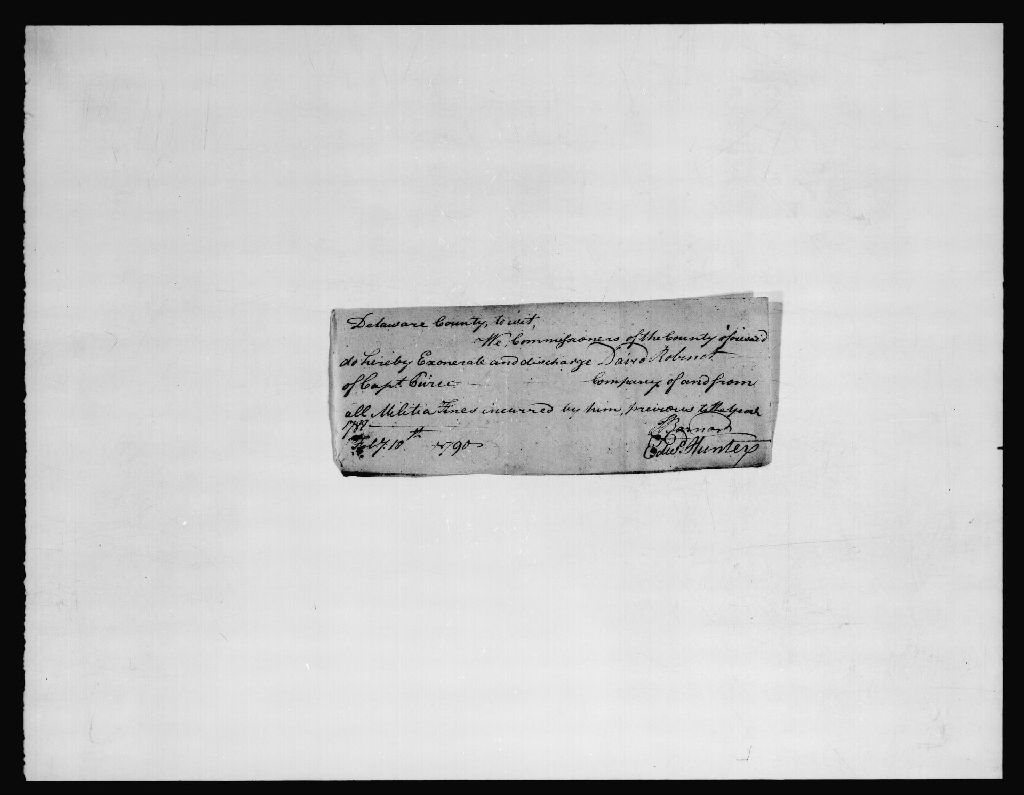 Delaware County, to wit,
We, Commissioners of the County aforesaid
do hereby Exonerate and discharge David Robinet
of Capt Company of and from
all Militia Fines incurred by him, previous to the year
Feby. 10th 1790 Barnard
Edwd. Hunter